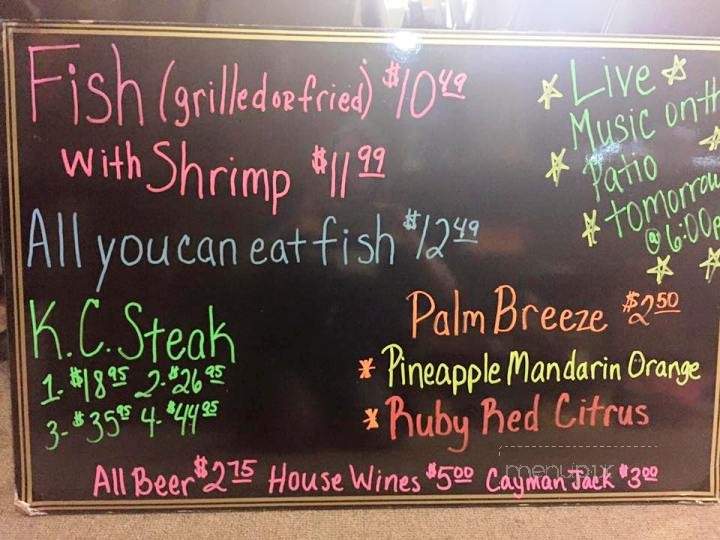 Fish (grilled or fried) $10 49
with Shrimp $11 99
All you can eat fish $12 49
Live
Music on th
Patio
tomorrow
@ 6:00p
K.C. Steak
1- $18 95 2- $26 95
3- $35 95 4- $44 95
Palm Breeze $2 50
* Pineapple Mandarin Orange
* Ruby Red Citrus
All Beer $2 75 House Wines $5 00 Cayman Jack $3 00
menupix